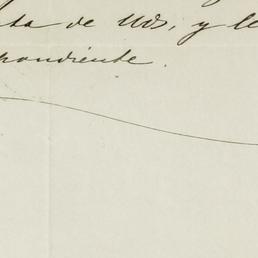 ta de Uds, y le
pondiente.